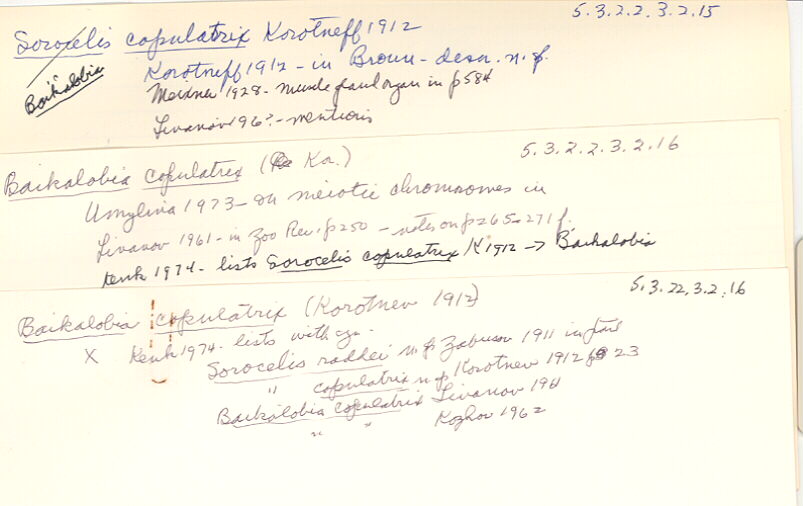 5.3.2.2.3.2.15
Sorocelis copulatrix Korotneff 1912
Baikalobia
Korotneff 1912 - in Brown - descr. n. sp.
Meixner 1928 - muscle gland organ in p584
Livanov 196? - mentions
5.3.2.2.3.2.16
Baikalobia copulatrix (Ko.)
Umylina 1973 - on meiotic chromosomes in
Livanov 1961 - in Zoo Rev. p250 - notes on p265-271 f.
Kenk 1974 - lists Sorocelis copulatrix K 1912 → Baikalobia
5.3.22.3.2.16
Baikalobia copulatrix (Korotnev 1912)
X Kenk 1974 - lists with syn -
Sorocelis raddei n sp Zabusov 1911 in part
" copulatrix n sp Korotnev 1912 p 23
Baikalobia copulatrix Livanov 1961
" " Kozhov 1962